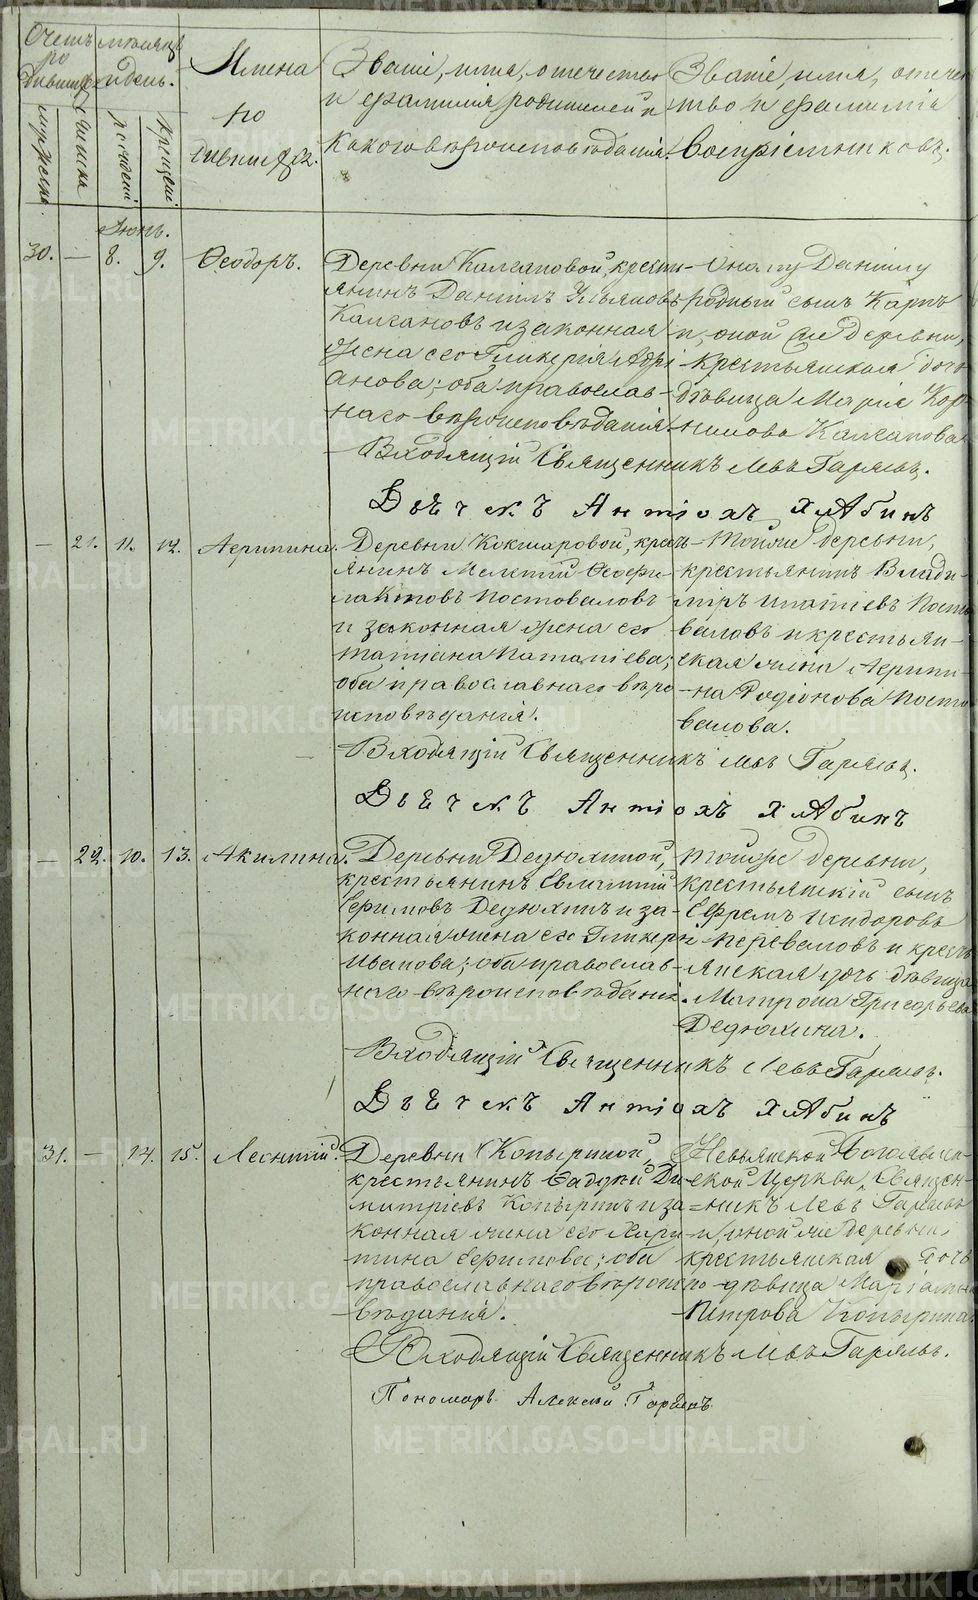 Счетъ ро дившихся
мѣсяцъ и день.
Имена родившихся.
Званіе, имя, отечество
и фамилія родителей и
какого вѣроисповѣданія.
Званіе, имя, отечес
тво и фамилія
воспріемниковъ.
мужеска.
женска
рожденія
крещенія
Іюнь.
30. — 8. 9. Ѳеодоръ.
Деревни Калгановой, кресть-
янинъ Даніилъ Ульяновъ
Калгановъ и законная
жена его Гликерія Адрі-
анова; оба православ-
наго вѣроисповѣданія.
Оному Даніилу
родный сынъ Карпъ
и, оной же деревни,
крестьянская дочь
дѣвица Марія Кор-
нилова Калганова.
Входящій Священникъ Левъ Гаряевъ.
Дьячекъ Антіохъ Хлябинъ
— 21. 11. 12. Агрипина.
Деревни Кокшаровой, кресть-
янинъ Мелетій Ѳеофи-
лактовъ Постоваловъ
и законная жена его
Татіана Ипатіева;
оба православнаго вѣро-
исповѣданія.
Тойже деревни,
крестьянинъ Влади-
міръ Ипатіевъ Посто-
валовъ и крестьян-
ская жена Агрипи-
на Родіонова Посто-
валова.
Входящій Священникъ Левъ Гаряевъ.
Дьячекъ Антіохъ Хлябинъ
— 22. 10. 13. Акилина.
Деревни Дедюхиной,
крестьянинъ Евлампій
Ефимовъ Дедюхинъ и за-
конная жена его Гликерія
Иванова; оба православ-
наго вѣроисповѣданія.
Тойже деревни,
крестьянскій сынъ
Ефремъ Исидоровъ
Переваловъ и кресть-
янская дочь дѣвица
Матрона Григорьева
Дедюхина.
Входящій Священникъ Левъ Гаряевъ.
Дьячекъ Антіохъ Хлябинъ
31. — 14. 15. Леонтій.
Деревни Копыриной,
крестьянинъ Фаддей Ди-
митріевъ Копыринъ и за-
конная жена его Хари-
тина Ефимова; оба
православнаго вѣроиспо-
вѣданія.
Невьянской Богоявлен-
ской Церкви, Священ-
никъ Левъ Гаряевъ
и, оной же деревни,
крестьянская дочь
дѣвица Маріамна
Петрова Копырина.
Входящій Священникъ Левъ Гаряевъ.
Пономарь Алексій Гаряевъ
METRIKI.GASO-URAL.RU